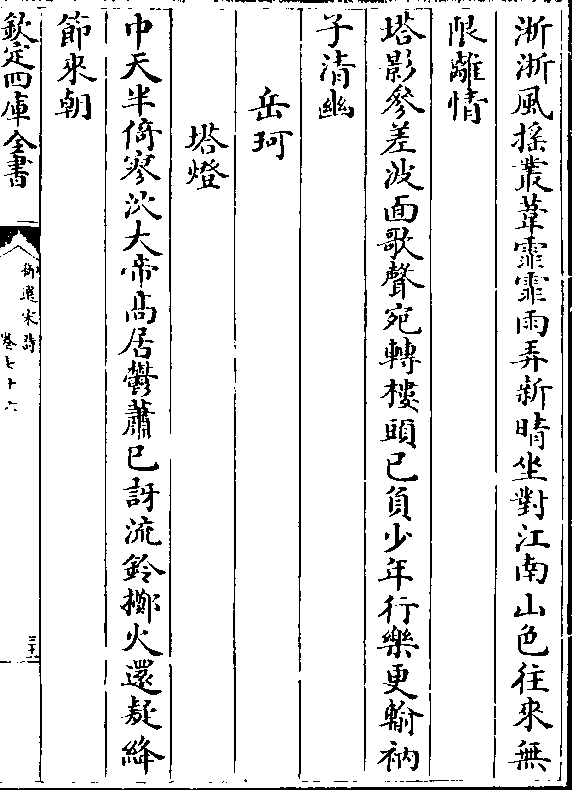 淅淅風揺叢葦霏霏雨弄新晴坐對江南山色往來無
限離情
塔影參差波面歌聲宛轉樓頭已負少年行樂更輸衲
子清幽
岳珂
塔燈
中天半倚寥泬大帝高居鬱蕭已訝流鈴擲火還疑絳
節來朝
欽定四庫全書
御選宋詩
卷七十六